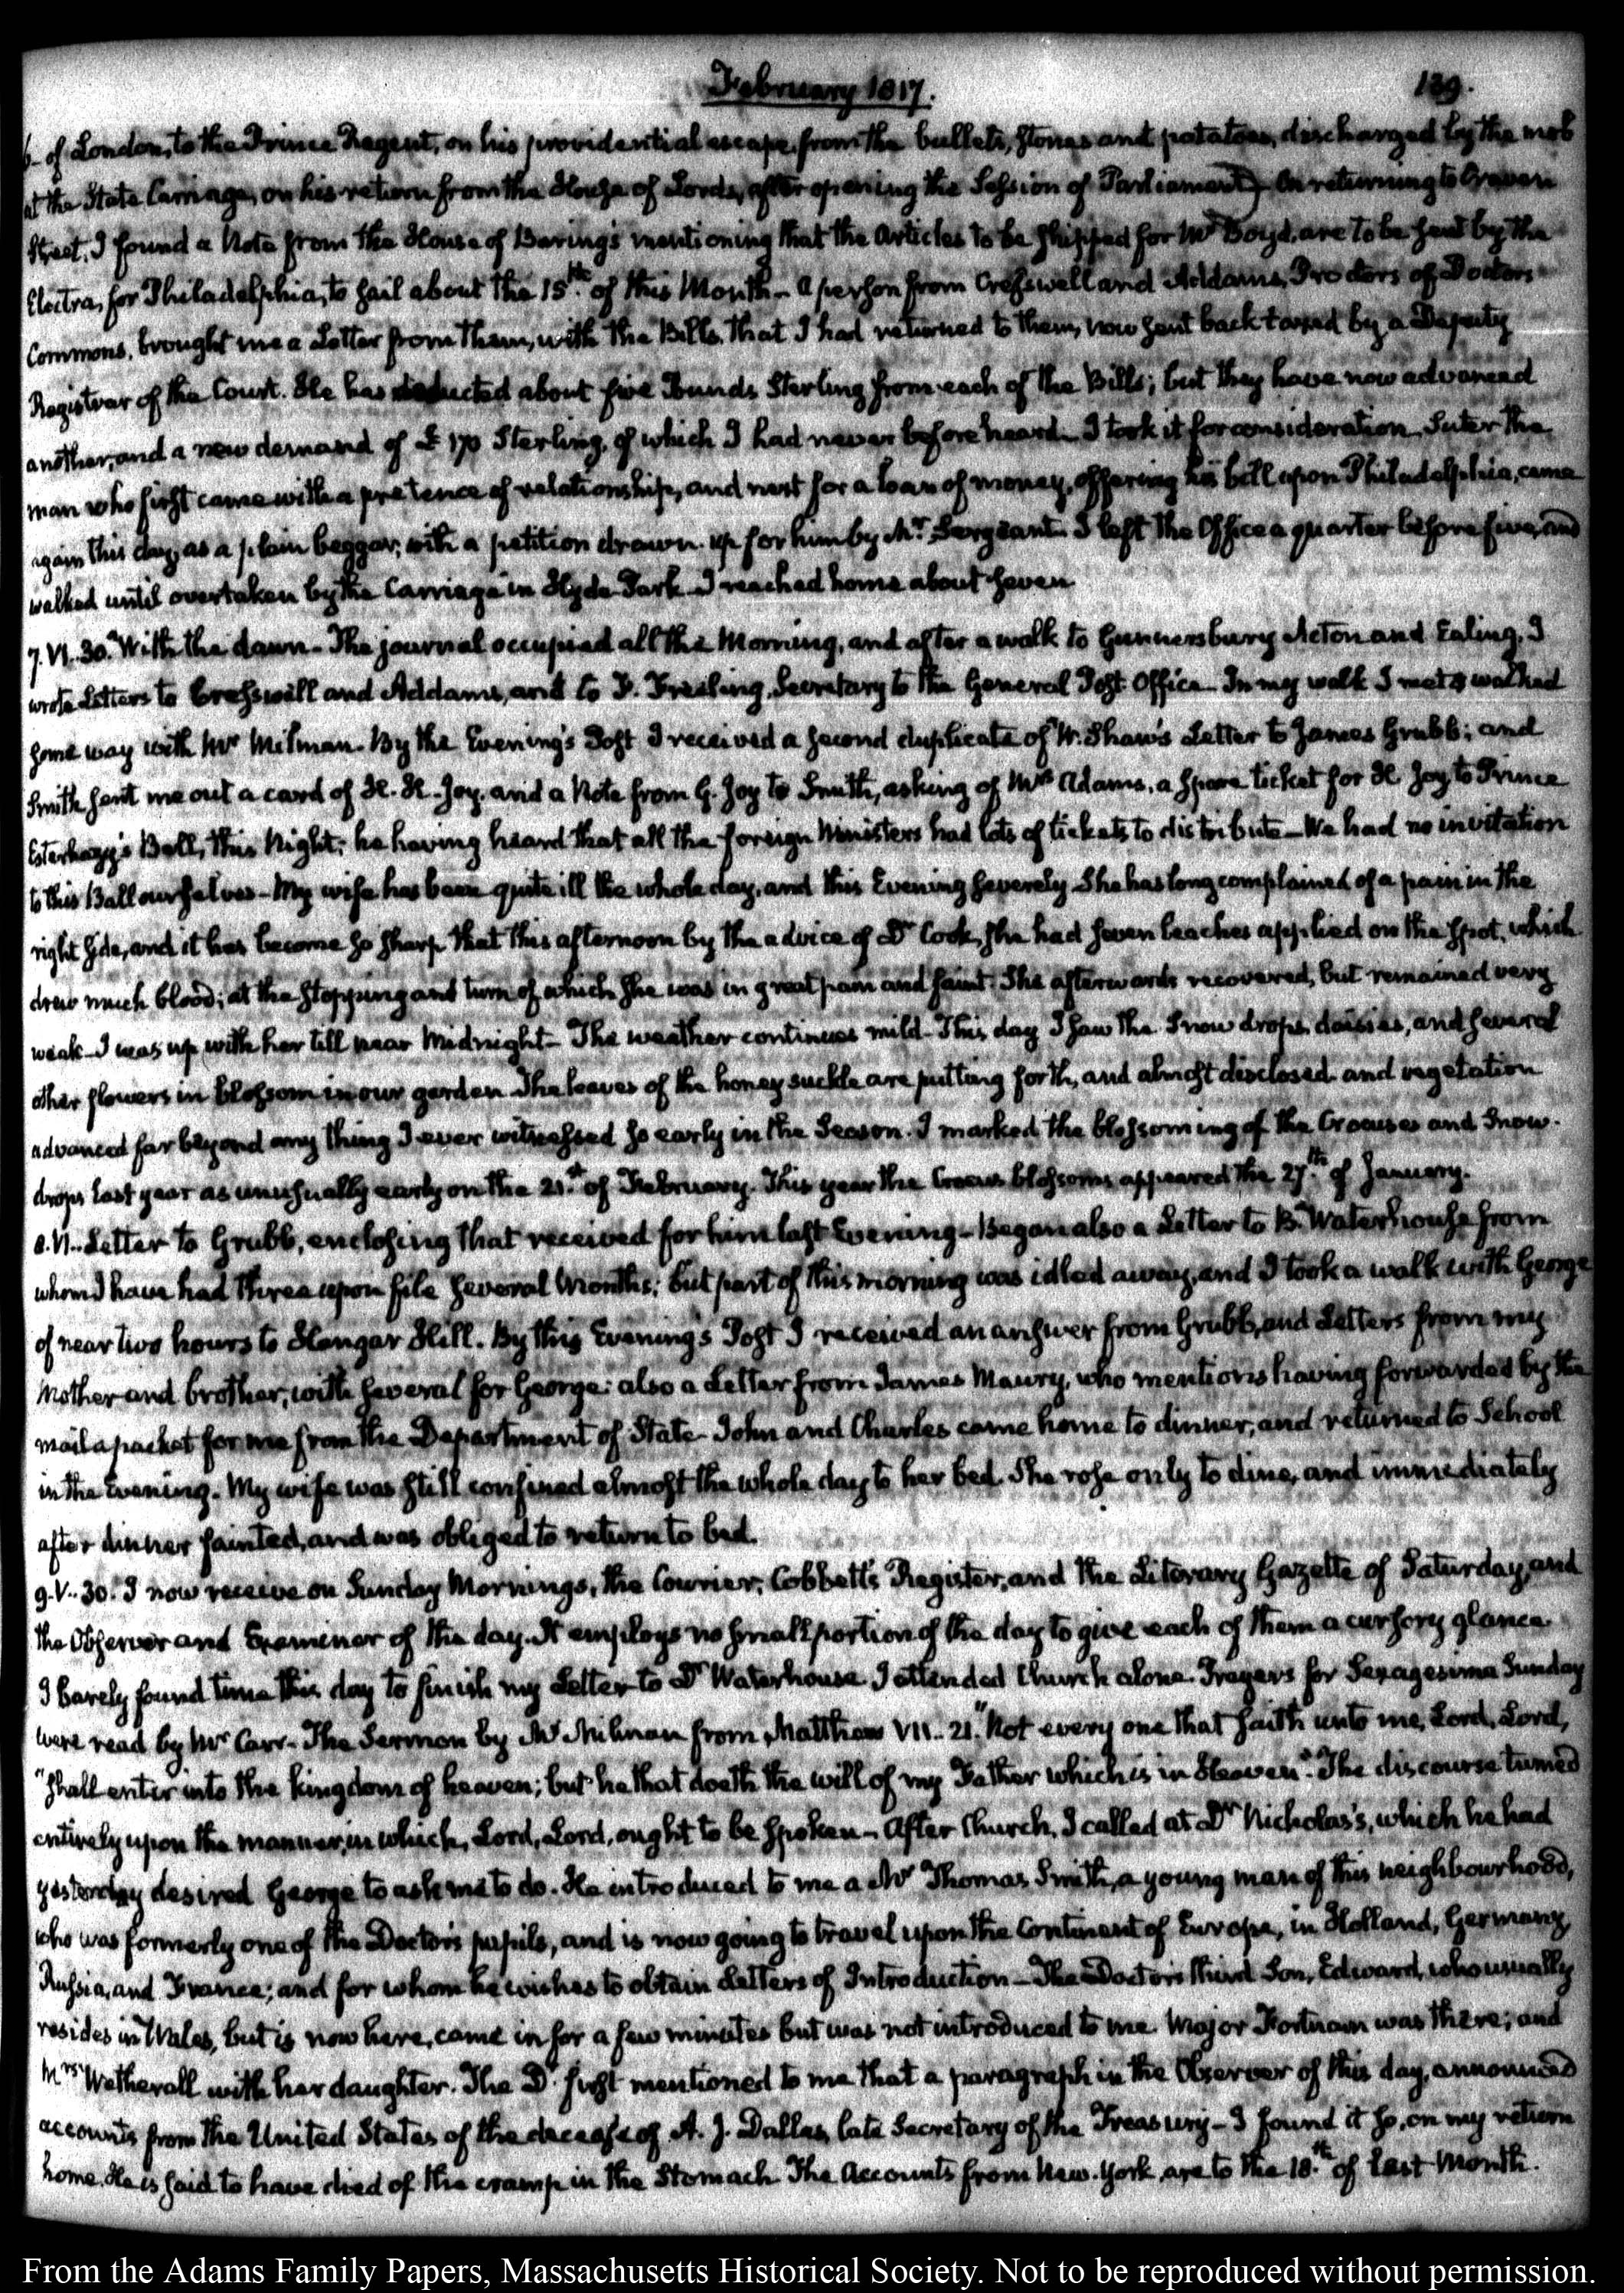 February 1817.
139.
6— of London, to the Prince Regent, on his providential escape from the bullets, stones and potatoes, discharged by the mob
at the State Carriage, on his return from the House of Lords, after opening the Session of Parliament) On returning to Craven
Street, I found a Note from the House of Barings mentioning that the Articles to be shipped for Mr Boyd, are to be sent by the
Electra, for Philadelphia, to sail about the 15th of this Month— A person from Cresswell and Addams, Proctors of Doctors
Commons, brought me a Letter from them, with the Bills, that I had returned to them, now sent back taxed by a Deputy
Registrar of the Court. He has deducted about five Pounds Sterling from each of the Bills; but they have now advanced
another, and a new demand of £170 Sterling, of which I had never before heard— I took it for consideration. Suter the
man who first came with a pretence of relationship, and next for a loan of money, offering his bill upon Philadelphia, came
again this day, as a plain beggar, with a petition drawn up for him by Mr Sergeant. I left the Office a quarter before five, and
walked until overtaken by the Carriage in Hyde-Park— I reached home about seven.
7. VI..30. With the dawn— The journal occupied all the Morning, and after a walk to Gunnersbury Acton and Ealing, I
wrote Letters to Cresswell and Addams, and to F. Freeling, Secretary to the General Post Office— In my walk I met & walked
some way with Mr Milman. By the Evening's Post I received a second duplicate of W. Shaw's Letter to James Grubb; and
Smith sent me out a card of H. H. Joy, and a Note from G. Joy to Smith, asking of Mrs Adams, a spare ticket for H. Joy to Prince
Esterhazy's Ball, this Night; he having heard that all the foreign Ministers had lots of tickets to distribute— We had no invitation
to this Ball ourselves— My wife has been quite ill the whole day, and this Evening severely. She has long complained of a pain in the
right side, and it has become so sharp that this afternoon by the advice of Dr Cook, she had seven leaches applied on the spot, which
drew much blood; at the stopping and turn of which she was in great pain and faint. She afterwards recovered, but remained very
weak— I was up with her till near Midnight— The weather continues mild— This day I saw the Snow drops, daisies, and several
other flowers in blossom in our garden. The leaves of the honey suckle are putting forth, and almost disclosed and vegetation
advanced far beyond any thing I ever witnessed so early in the Season. I marked the blossoming of the Crocuses and Snow-
drops last year as unusually early on the 21st of February. This year the Crocus blossoms appeared the 27th of January.
8. VI.. Letter to Grubb, enclosing that received for him last Evening— Began also a Letter to B. Waterhouse from
whom I have had three upon file several Months; but part of this morning was idled away, and I took a walk with George
of near two hours to Hangar Hill. By this Evening's Post I received an answer from Grubb, and Letters from my
Mother and brother, with several for George: also a Letter from James Maury, who mentions having forwarded by the
mail a packet for me from the Department of State— John and Charles came home to dinner, and returned to School
in the Evening. My wife was still confined almost the whole day to her bed. She rose only to dine, and immediately
after dinner fainted, and was obliged to return to bed.
9. V..30. I now receive on Sunday Mornings, the Courier, Cobbett's Register, and the Literary Gazette of Saturday, and
the Observer and Examiner of the day. It employs no small portion of the day to give each of them a cursory glance.
I barely found time this day to finish my Letter to Dr Waterhouse. I attended Church alone. Prayers for Sexagesima Sunday
were read by Mr Carr— The Sermon by Mr Milman from Matthew VII..21. "Not every one that saith unto me, Lord, Lord,
"shall enter into the kingdom of heaven; but he that doeth the will of my Father which is in Heaven". The discourse turned
entirely upon the manner, in which, Lord, Lord, ought to be spoken— After Church, I called at Dr Nicholas's, which he had
yesterday desired George to ask me to do. He introduced to me a Mr Thomas Smith, a young man of this neighbourhood,
who was formerly one of the Doctor's pupils, and is now going to travel upon the Continent of Europe, in Holland, Germany,
Russia, and France; and for whom he wishes to obtain Letters of Introduction— The Doctor's third Son, Edward, who usually
resides in Wales, but is now here, came in for a few minutes but was not introduced to me. Major was there; and
Mrs Wetherall with her daughter. The Dr first mentioned to me that a paragraph in the Observer of this day, announced
accounts from the United States of the decease of A. J. Dallas, late Secretary of the Treasury— I found it so, on my return
home. He is said to have died of the cramp in the Stomach. The Accounts from New-York, are to the 18th of last Month.
From the Adams Family Papers, Massachusetts Historical Society. Not to be reproduced without permission.